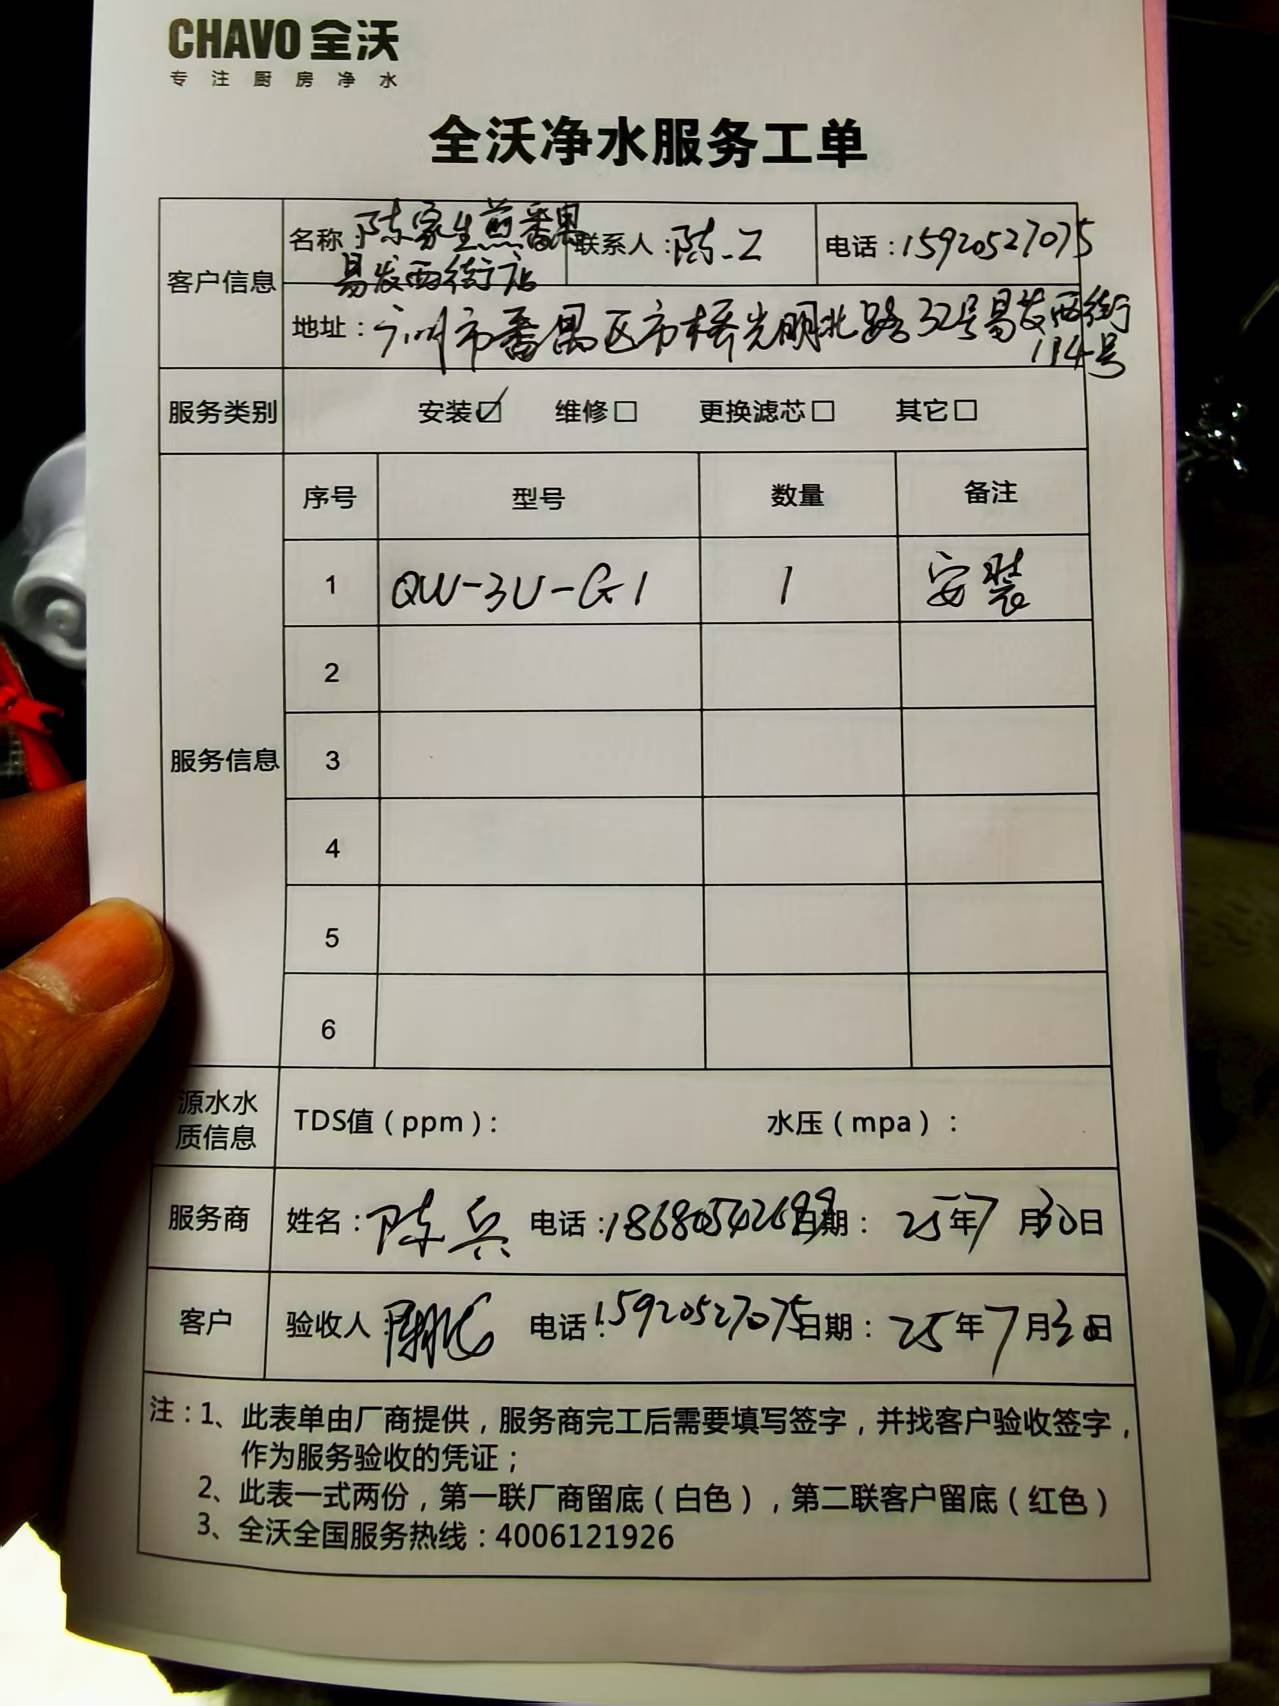 CHAVO 全沃
专注厨房净水
全沃净水服务工单
客户信息
名称：陈家生煎番禺
易发西街店
联系人：陈工
电话：15920527075
地址：广州市番禺区市桥光明北路32号易发西街
114号
服务类别 安装☑ 维修□ 更换滤芯□ 其它□
服务信息
序号 型号 数量 备注
1 QW-3U-G1 1 安装
2
3
4
5
6
源水水
质信息
TDS值（ppm）： 水压（mpa）：
服务商 姓名：陈兵 电话：186805426 日期：25年7月30日
客户 验收人 电话：15920527075 日期：25年7月30日
注：1、此表单由厂商提供，服务商完工后需要填写签字，并找客户验收签字，
作为服务验收的凭证；
2、此表一式两份，第一联厂商留底（白色），第二联客户留底（红色）
3、全沃全国服务热线：4006121926